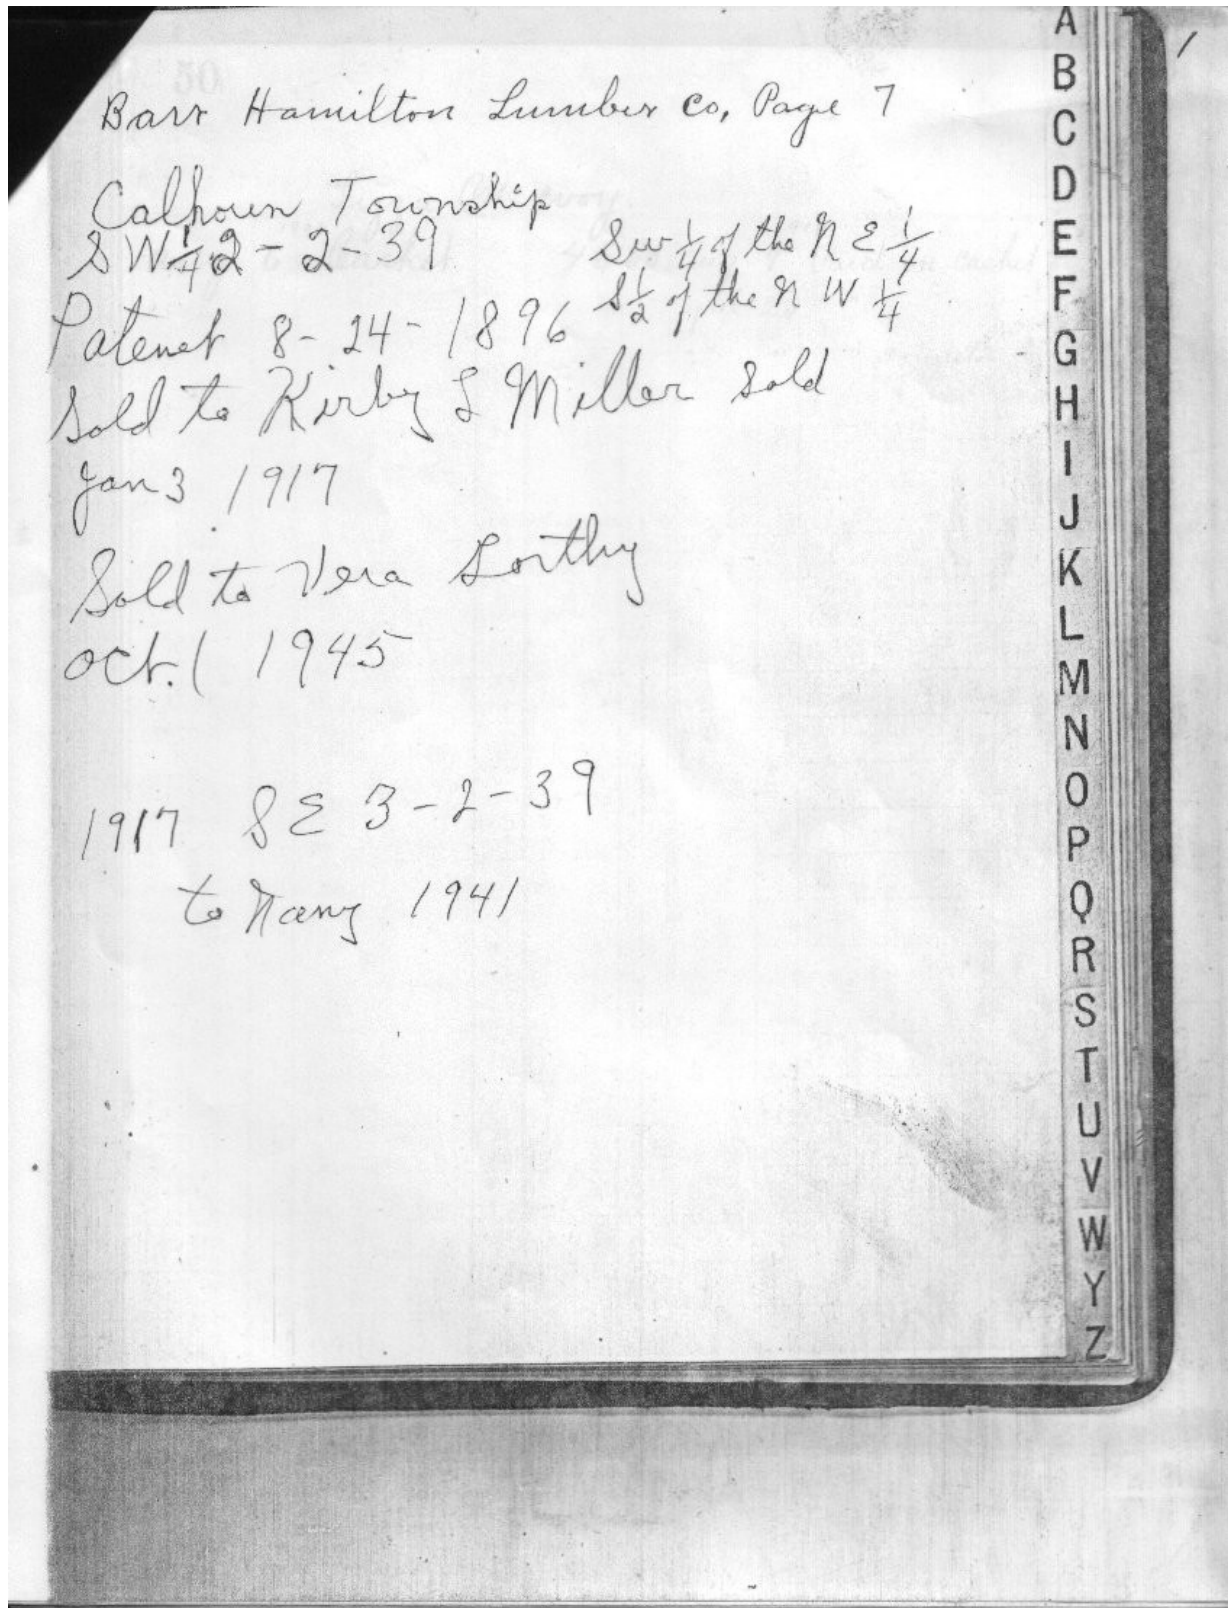 Barr Hamilton Lumber Co, Page 7
Calhoun Township
SW 1/4 2-2-39
SW 1/4 of the N E 1/4
S 1/2 of the N W 1/4
Patenet 8-24-1896
Sold to Kirby L Miller Sold
Jan 3 1917
Sold to Vera
Oct. 1 1945
1917 S E 3-2-39
to 1941
A
B
C
D
E
F
G
H
I
J
K
L
M
N
O
P
Q
R
S
T
U
V
W
Y
Z